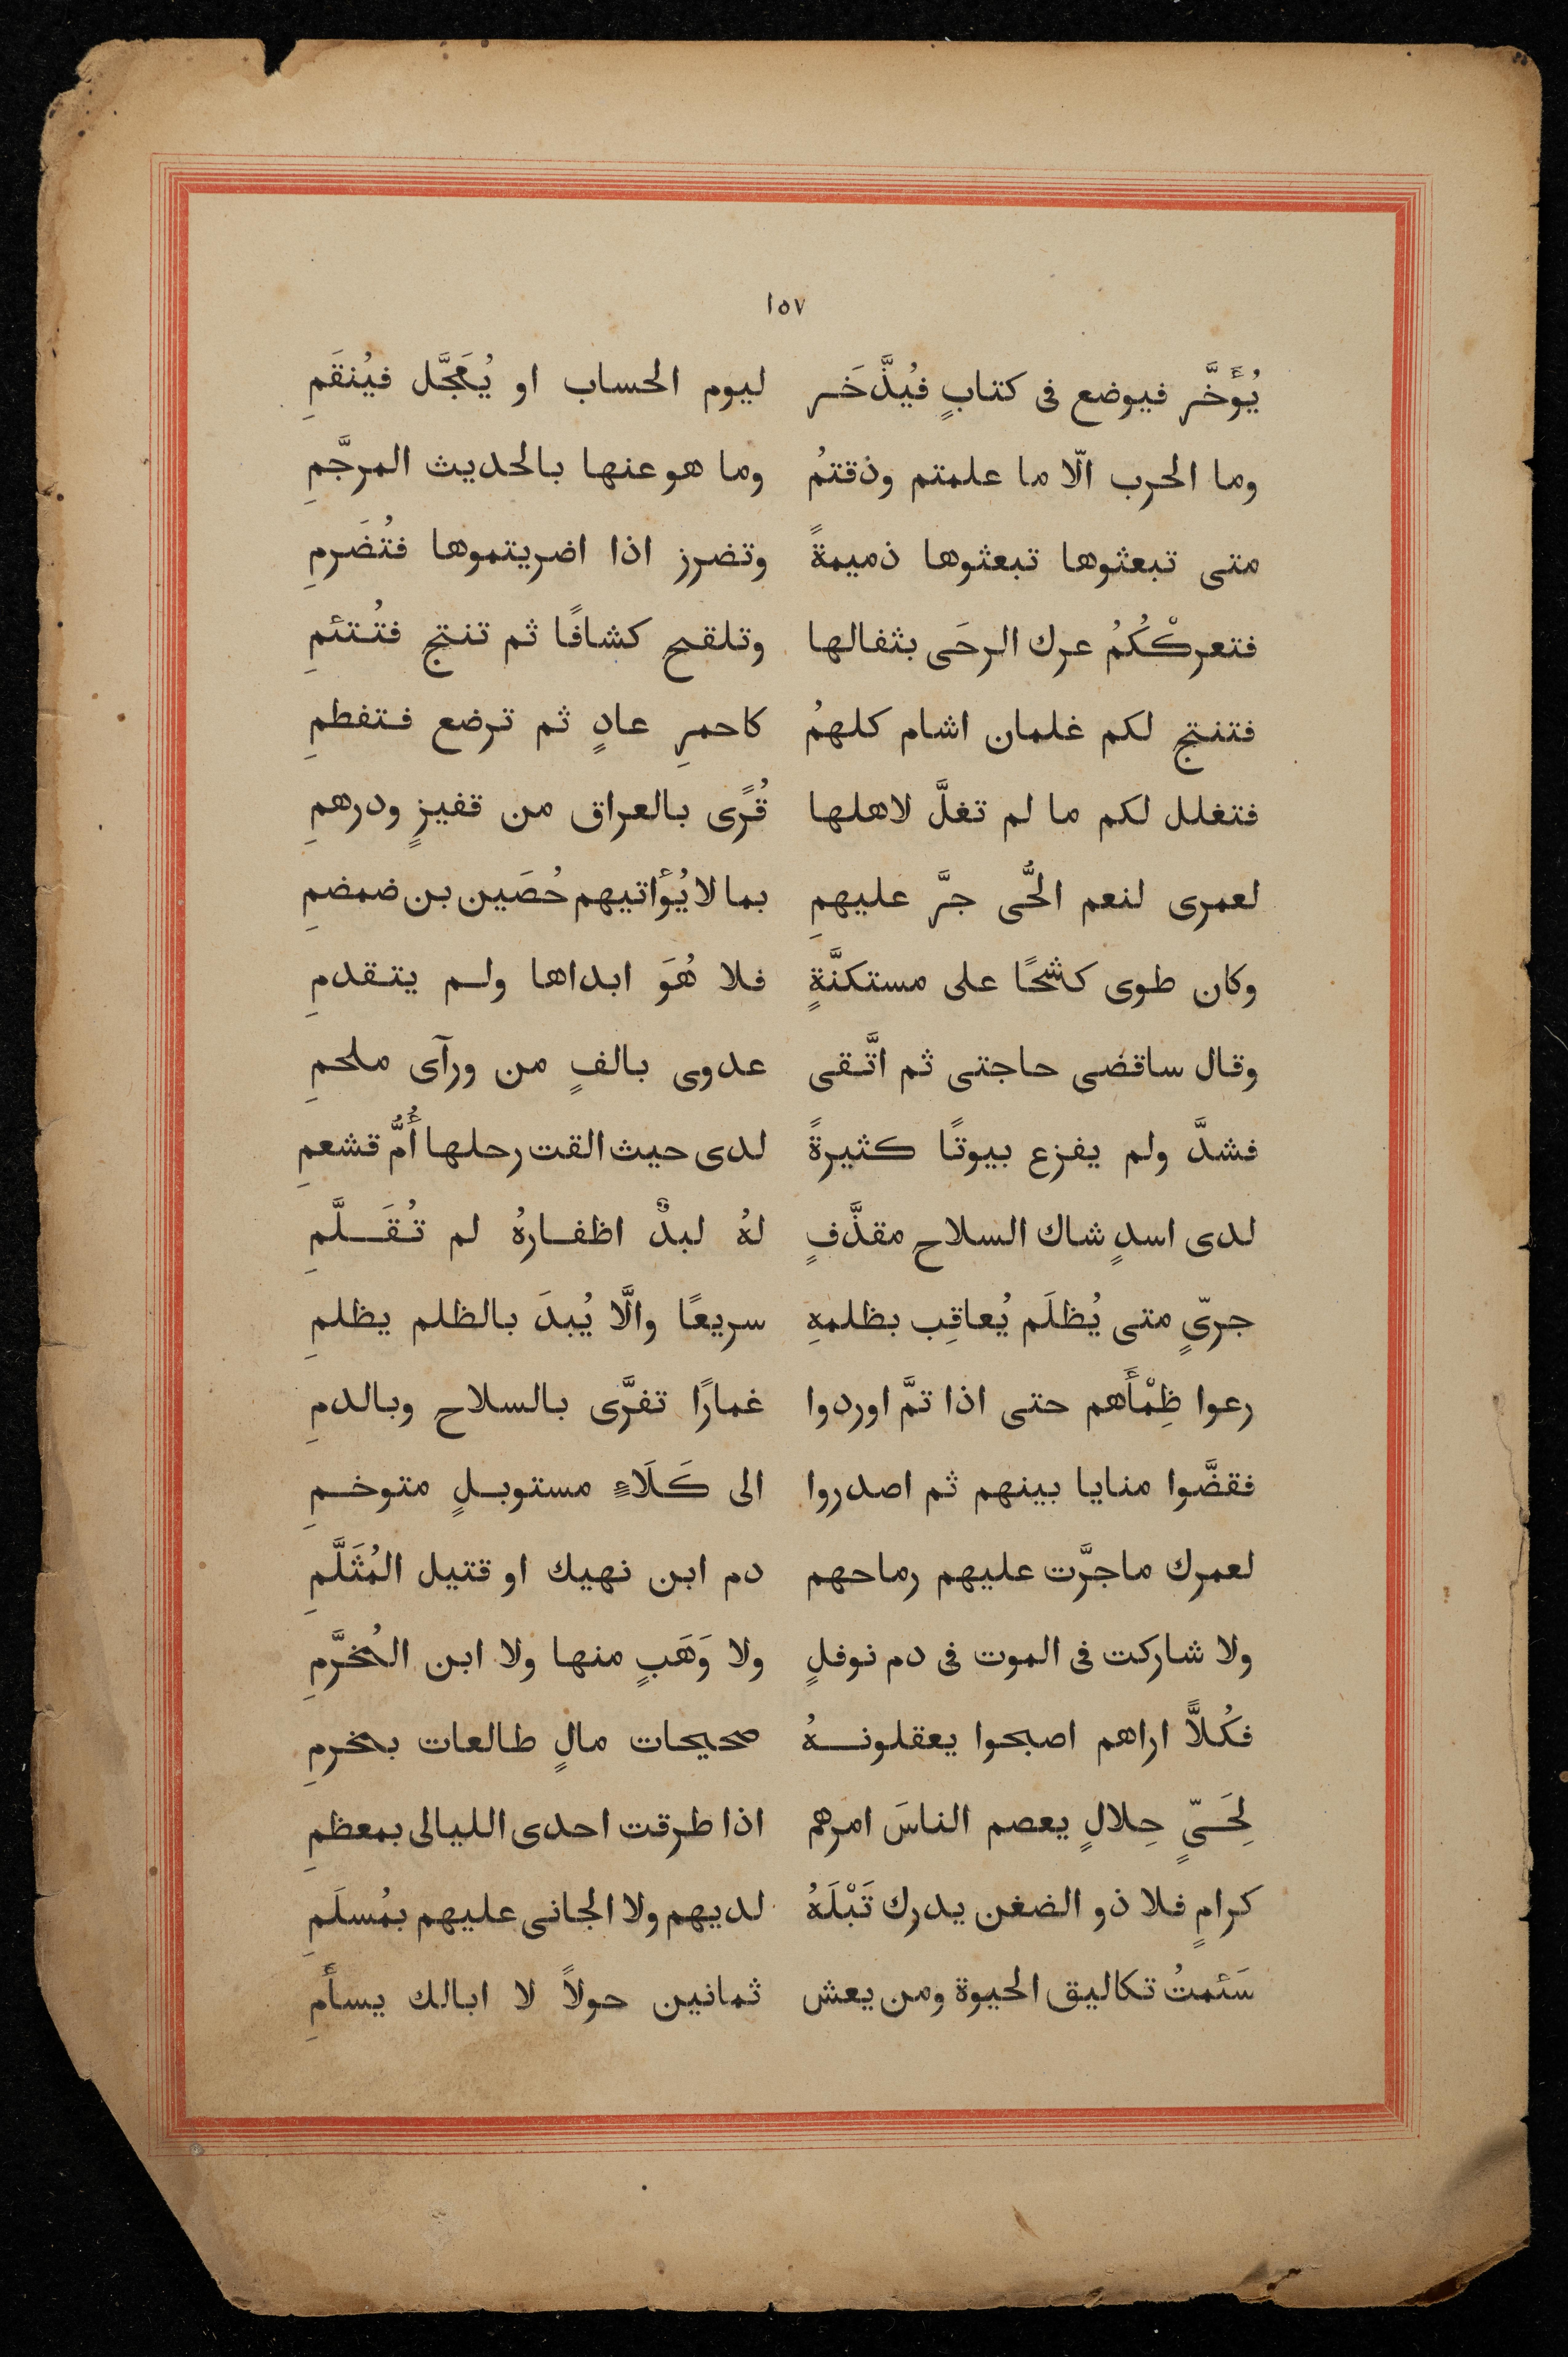 ١٥٧
يُؤَخَّر فيوضع فى كتابٍ فيُذَّخَر ليوم الحساب او يُعَجَّل فيُنقَمِ
وما الحرب الّا ما علمتم وذقتمُ وما هو عنها بالحديث المرجَّمِ
متى تبعثوها تبعثوها ذميمةً وتضرز اذا اضريتموها فتُضَرمِ
فتعركْكُمُ عرك الرحَى بثفالها وتلقح كشافًا ثم تنتج فتُتئمِ
فتنتج لكم غلمان اشام كلهمُ كاحمرِ عادٍ ثم ترضع فتفطمِ
فتغلل لكم ما لم تغلَّ لاهلها قُرًى بالعراق من قفيزٍ ودرهمِ
لعمرى لنعم الحُّى جرَّ عليهمِ بما لا يُؤاتيهم حُصَين بن ضمضمِ
وكان طوى كشحًا على مستكنَّةٍ فلا هُوَ ابداها ولم يتقدمِ
وقال ساقضى حاجتى ثم اتَّقى عدوى بالفٍ من ورآى ملحمِ
فشدَّ ولم يفزع بيوتًا كثيرةً لدى حيث القت رحلها أُمُّ قشعمِ
لدى اسدٍ شاك السلاح مقذَّفٍ لهُ لبدٌ اظفارهُ لم تُقَلَّمِ
جرىّءٍ متى يُظلَم يُعاقِب بظلمهِ سريعًا والَّا يُبدَ بالظلم يظلمِ
رعوا ظِمْأَهم حتى اذا تمَّ اوردوا غمارًا تفرَّى بالسلاح وبالدمِ
فقضَّوا منايا بينهم ثم اصدروا الى كَلَاءٍ مستوبلٍ متوخمِ
لعمرك ماجرَّت عليهم رماحهم دم ابن نهيك او قتيل المُثَلَّمِ
ولا شاركت فى الموت فى دم نوفلٍ ولا وَهَبٍ منها ولا ابن المُخرَّمِ
فكُلاًّ اراهم اصبحوا يعقلونهُ صحيحات مالٍ طالعات بمخرمِ
لِحَىٍّ حِلالٍ يعصم الناسَ امرهم اذا طرقت احدى الليالى بمعظمِ
كرامٍ فلا ذو الضغن يدرك تَبْلَهُ لديهم ولا الجانى عليهم بمُسلَمِ
سَئمتُ تكاليق الحيوة ومن يعش ثمانين حولاً لا ابالك يسأمِ